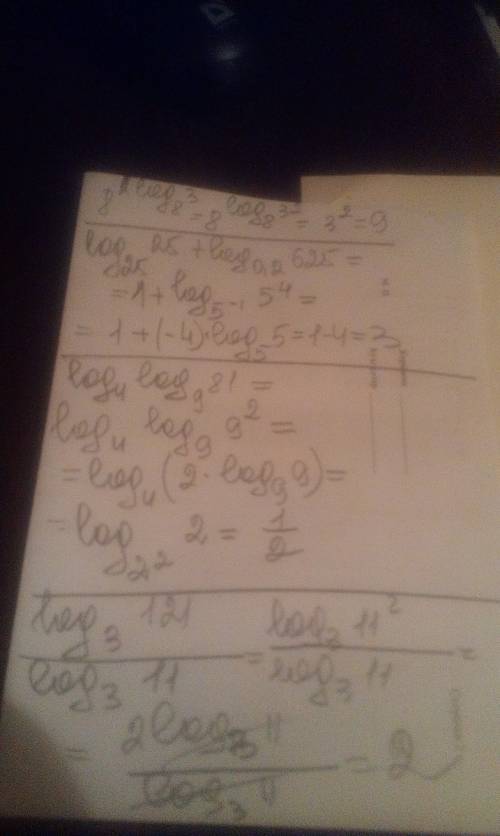 8^{2log_8 3} = 8^{log_8 3^2} = 3^2 = 9
log_{25} 25 + log_{0,2} 625 =
= 1 + log_{5^{-1}} 5^4 =
= 1 + (-4) · log_5 5 = 1 - 4 = 3
log_4 log_9 81 =
log_4 log_9 9^2 =
= log_4 (2 · log_9 9) =
= log_{2^2} 2 = \frac{1}{2}
\frac{log_3 121}{log_3 11} = \frac{log_3 11^2}{log_3 11} =
= \frac{2 log_3 11}{log_3 11} = 2